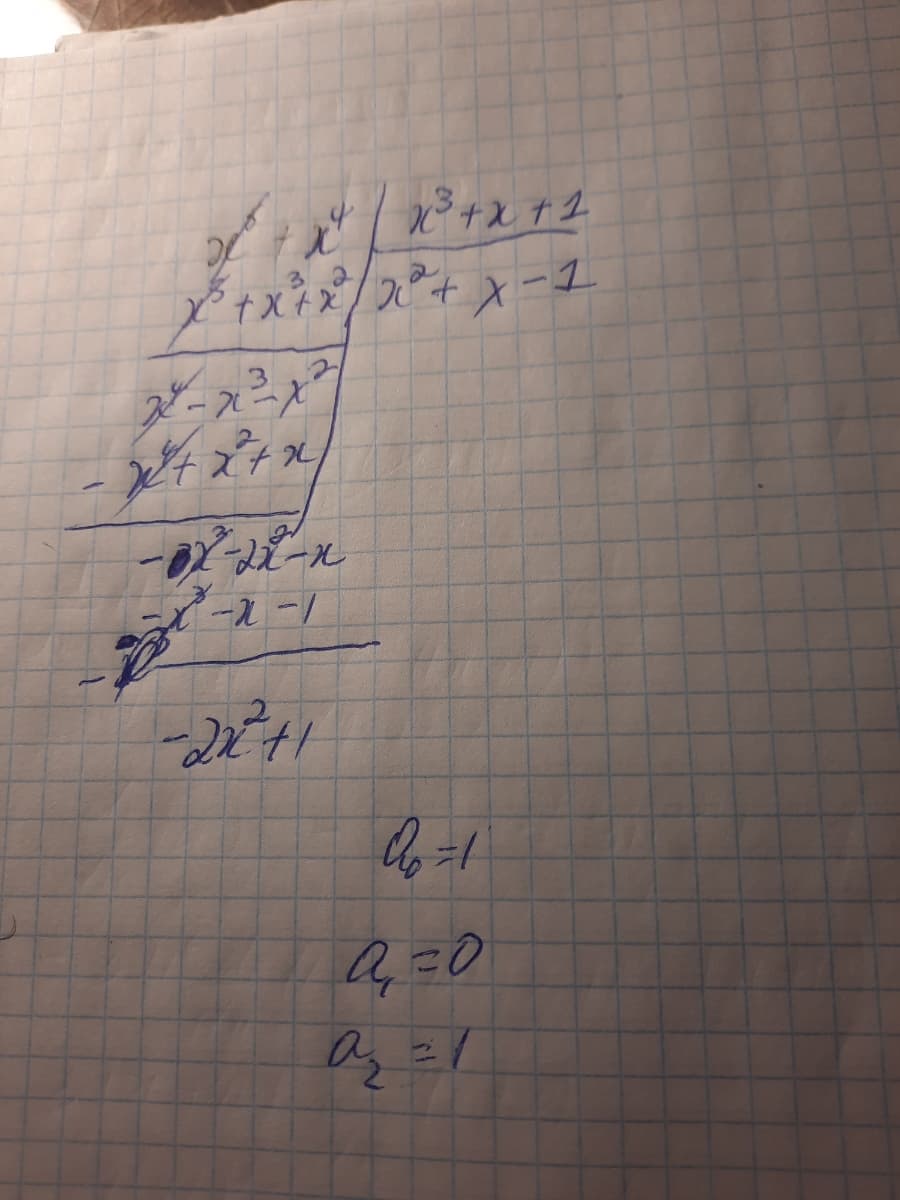 x⁵ + x⁴ | x³ + x + 1
x⁵ + x³ + x² | x² + x - 1
x⁴ - x³ - x²
- x⁴ + x² + x
- x³ - 2x² - x
- x³ - x - 1
-
-2x² + 1
a₀ = 1
a₁ = 0
a₂ = 1